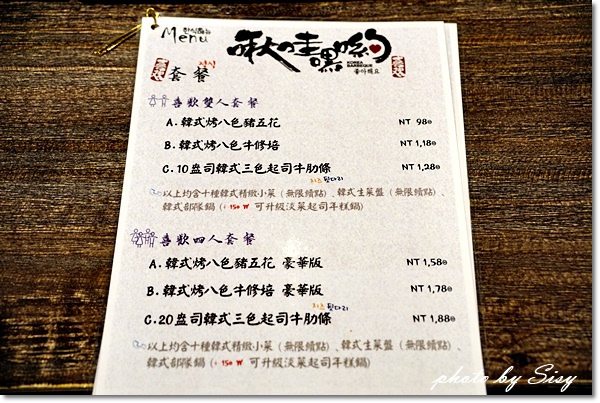 한식메뉴
Menu
啾哇嘿喲
KOREA
BARBEQUE
좋아해요
套餐
喜歡雙人套餐
A.韓式烤八色豬五花 NT 980
B.韓式烤八色牛修培 NT 1,180
C.10盎司韓式三色起司牛肋條 NT 1,280
치즈 등다리
以上均含十種韓式精緻小菜（無限續點）、韓式生菜盤（無限續點）、
韓式部隊鍋（+150 ₩ 可升級淡菜起司年糕鍋）
喜歡四人套餐
A.韓式烤八色豬五花 豪華版 NT 1,580
B.韓式烤八色牛修培 豪華版 NT 1,780
치즈 등다리
C.20盎司韓式三色起司牛肋條 NT 1,880
以上均含十種韓式精緻小菜（無限續點）、韓式生菜盤（無限續點）、
韓式部隊鍋（+150 ₩ 可升級淡菜起司年糕鍋）
photo by Sisy